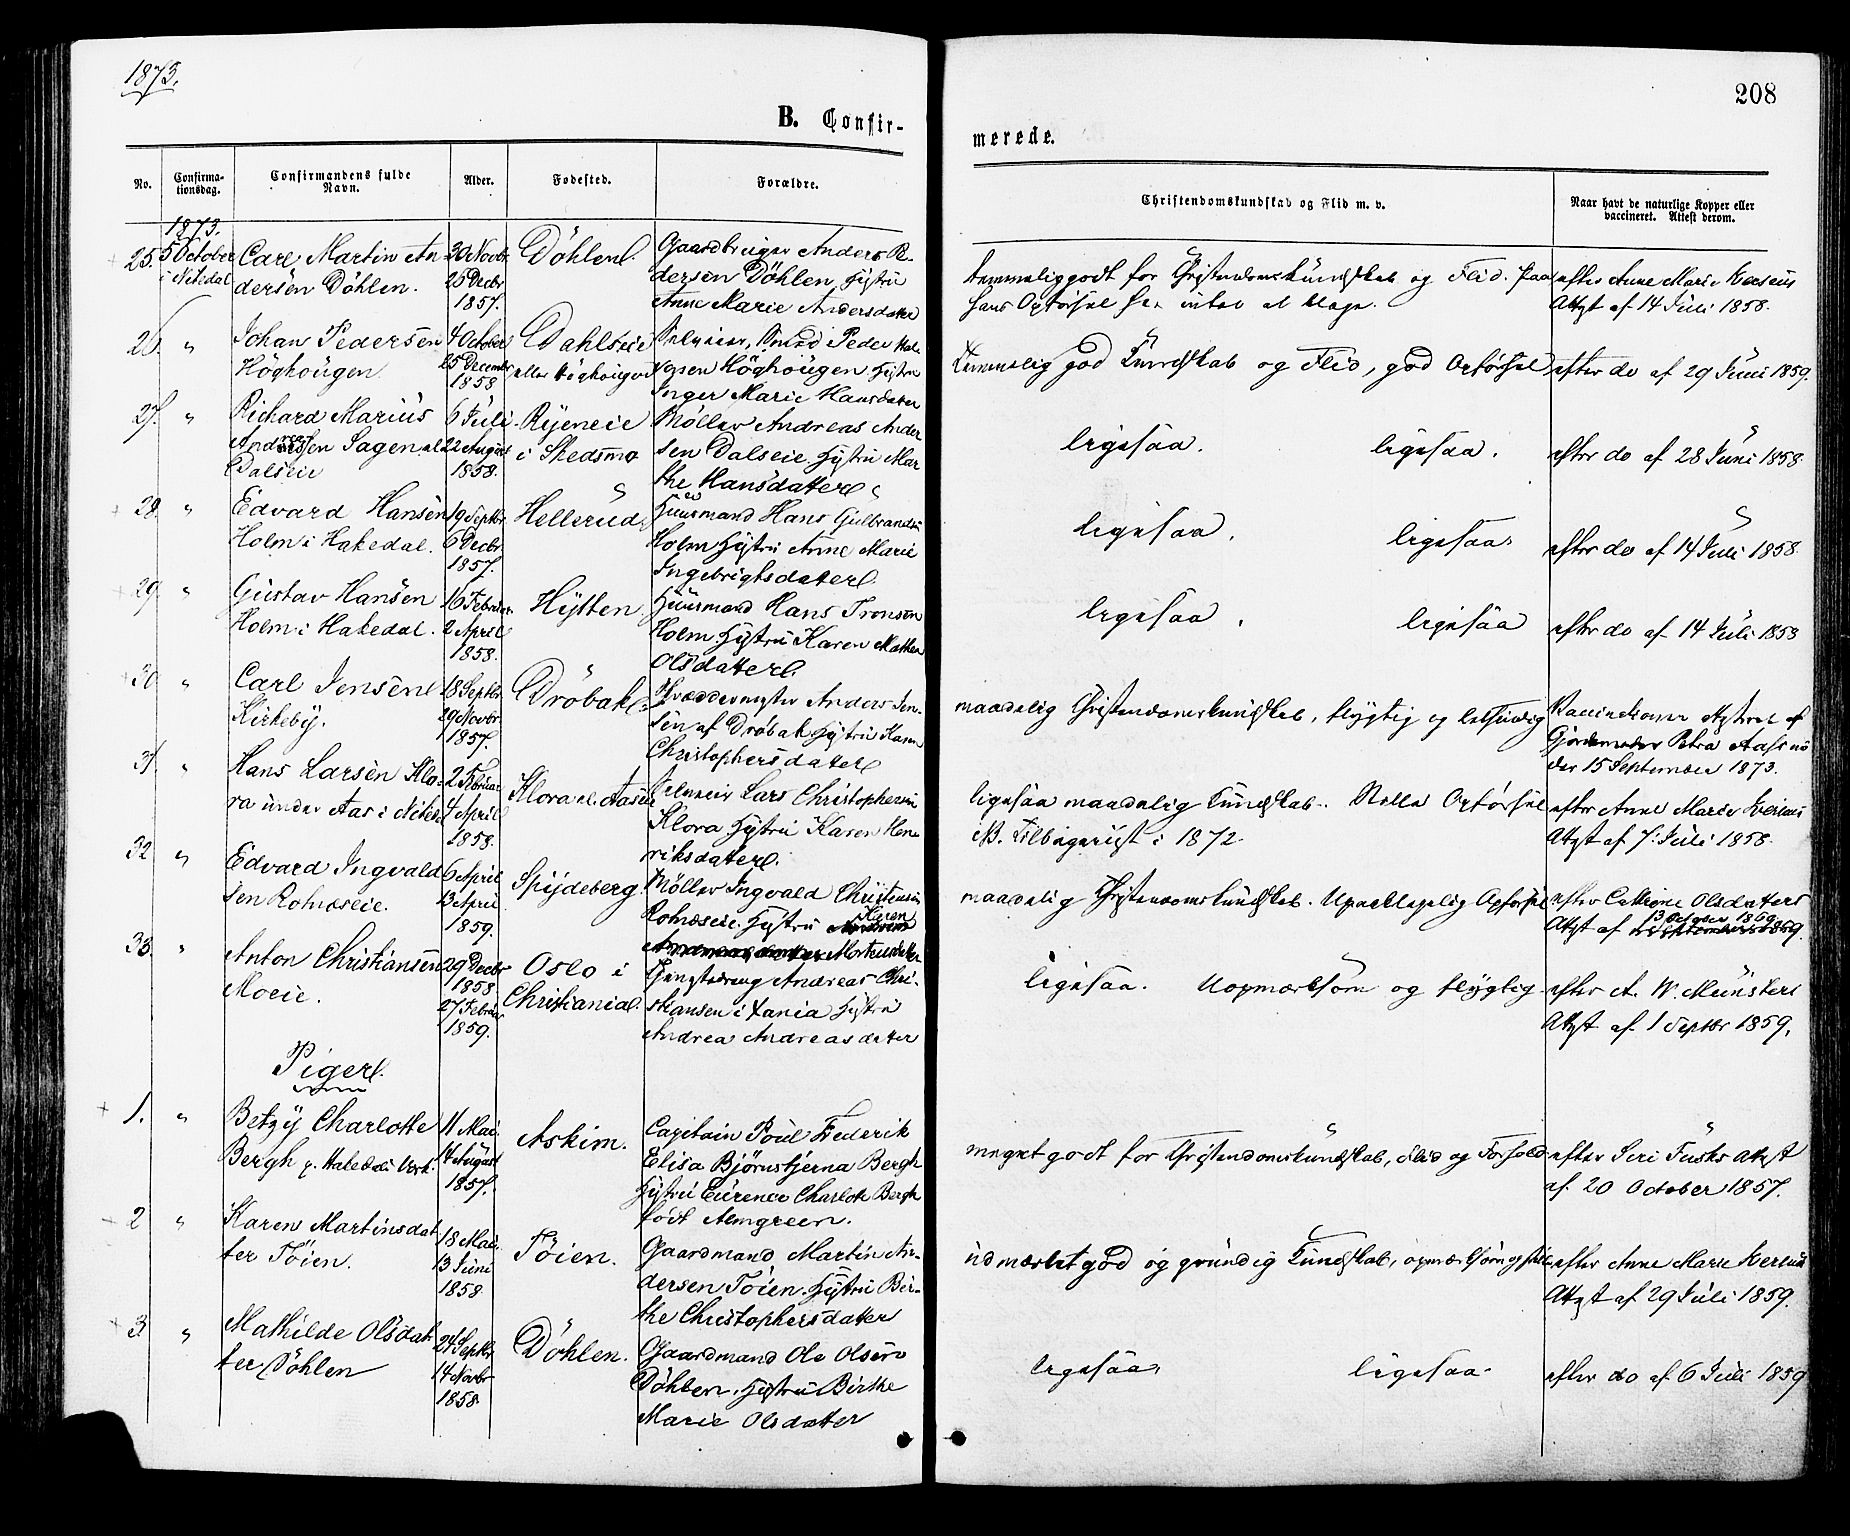 1873.
208
B. Confir-
merede.
No.
Confirma-
tionsdag.
Confirmandens fulde
Navn.
Alder.
Fødested.
Forældre.
Christendomskundskab og Flid m. v.
Naar havt de naturlige Kopper eller
vaccineret. Attest derom.
1873.
25. 5 October
i Nitedal
Carl Martin An
dersen Döhlen.
30 Novbr
26 Decbr
1857.
Döhlen.
Gaardbruger Anders Pe-
dersen Döhlen, Hustru
Anne Marie Andersdatter
temmelig godt for Christendoms Kundskab og Flid. Paa
hans Opførsel har intet at klage.
efter Anne Marie
Attst af 14 Juli 1858.
26. "
Johan Pedersen
Höghougen
4 October
25 December
1858
Dahlseie
eller Höghougen
Peder
Höghougen Hustru
Inger Marie Hansdatter
temmelig god Kundskab og Flid, god Opførsel
efter do af 29 Juni 1859.
27. "
Richard Marius
Andreassen Sagen
Dalseie
6 Juli
22 August
1858.
Ryeneie
i Skedsmo
Möller Andreas Ander
sen Dalseie. Hustru Mar
the Hansdatter
ligesaa. ligesaa.
efter do af 28 Juni 1858.
28. "
Edvard Hansen
Holm i Hakedal.
19 Septbr
6 Decbr
1857.
Hellerud.
Huusmand Hans Gulbrandsen
Holm Hustru Anne Marie
Ingebrigtsdatter.
ligesaa. ligesaa
efter do af 14 Juli 1858.
29. "
Gustav Hansen
Holm i Hakedal.
16 Februar
2 April
1858.
Hytten.
Huusmand Hans Tronsen
Holm Hustru Karen Mathea
Olsdatter.
ligesaa. ligesaa
efter do af 14 Juli 1858
30. "
Carl Jensen
Kirkeby.
18 Septbr.
29 Novbr.
1857.
Dröbak
Skræddermester Anders Jen-
sen af Dröbak Hustru Karen
Christophersdatter
maadelig Christendomskundskab, flygtig og letsindig
Vaccinekarna Attest af
Gjordemoder Petra
der 15 September 1873.
31. "
Hans Larsen Klo-
ra under Aas i
2 Februar
4 April
1858.
Klora el. Aaseie
Lars Christophersen
Klora Hustru Karen Hen-
riksdatter.
ligesaa maadelig Kundskab. Stille Opførsel
i 1872.
efter Anne Marie
Attst af 7 Juli 1858.
32 "
Edvard Ingvald
sen Romæseie.
6 April
13 April
1859.
Spydeberg.
Möller Ingvald Christensen
Romæseie. Hustru
Karen
Mortensdatter
maadelig Christendomskundskab. Upaaklagelig Opførsel
efter Cathrine Olsdatters
13 October 1869
Attst af
33. "
Anton Christiansen
Moeie.
29 Decbr
1858
27 Februar
1859.
Oslo i
Christiania.
Andreas Chri-
stiansen i Xania Hustru
Andrea Andreasdatter
ligesaa. Uopmærksom og flygtig.
efter A. W. Münsters
Attst af 1 Septbr 1859.
Piger.
1. "
Betzy Charlotte
Bergh p. Hakedals Verk.
11 Mai.
14 August
1857.
Askim.
Capitain Poul Frederik
Elisa Björnstjerna Bergh
Hustru Laurence Charlotte Bergh
født Almgreen.
meget godt for Christendomskundskab, Flid og Forhold
efter Siri Fusks Attst
af 20 October 1857.
2 "
Karen Martinsdat
ter Töien.
18 Mai.
13 Juni
1858
Töien.
Gaardmand Martin An-
dersen Töien. Hustru Bir-
the Christophersdatter
udmærket god og grundig Kundskab, opmærksom og
efter Anne Marie
Attst af 29 Juli 1859.
3 "
Mathilde Olsdat
ter Döhlen
24 Septbr.
14 Novbr
1858
Döhlen.
Gaardmand Ole Olsen
Döhlen. Hustru Birthe
Marie Olsdatter
ligesaa. ligesaa.
efter do af 6 Juli 1859